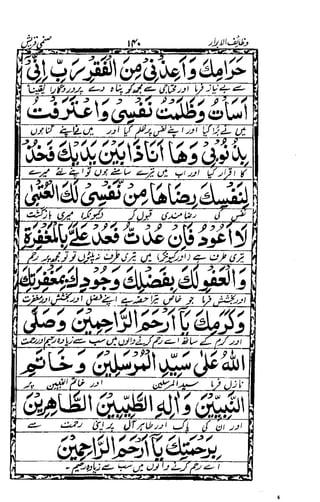 وظائف الابرار ۱۴۰ صحیفی قریش
حَرَامِكَ وَاَعِذْنِيْ مِنَ الْفَقْرِ رَبِّ اِنِّيْ
سے بے نیاز فرما اور محتاجی سے مجھ کو پناہ دے پروردگارا یقیناً
اَسَأْتُ وَظَلَمْتُ نَفْسِيْ وَاعْتَرَفْتُ
میں نے بُرا کیا اور اپنے نفس پر ظلم کیا اور میں نے اپنے گناہوں
بِذُنُوْبِيْ وَهَا اَنَاذَا بَيْنَ يَدَيْكَ فَخُذْ
کا اقرار کیا اور اب میں تیرے سامنے ہوں تو اپنے لئے میرے
لِنَفْسِكَ رِضَاهَا مِنْ نَفْسِيْ لَكَ الْعُتْبٰى
نفس کی رضامندی قبول کر کیونکہ میری بازگشت
لَا اَعُوْدُ فَاِنْ عُدْتُ فَعُدْ عَلَيَّ بِالْمَغْفِرَةِ
تیری طرف ہے
وَالْعَفْوِ لَكَ بِفَضْلِكَ وَجُوْدِكَ بِمَغْفِرَتِكَ
اور بخشش فرما جو خاص تیرا حصہ ہے اپنے فضل اور بخشش اور مغفرت
وَكَرَمِكَ يَا اَرْحَمَ الرَّاحِمِيْنَ وَصَلَّى
اور کرم کے ساتھ اے رحم کرنے والوں میں سب سے زیادہ رحیم اور رحمت
اللّٰهُ عَلٰى سَيِّدِ الْمُرْسَلِيْنَ وَخَاتَمِ
نازل فرما سید المرسلین اور خاتم النبیین پر
النَّبِيِّيْنَ وَاٰلِهِ الطَّيِّبِيْنَ الطَّاهِرِيْنَ
اور ان کی پاک اور طاہر آل پر اپنی رحمت سے
بِرَحْمَتِكَ يَا اَرْحَمَ الرَّاحِمِيْنَ
اے رحم کرنے والوں میں سب سے زیادہ رحیم